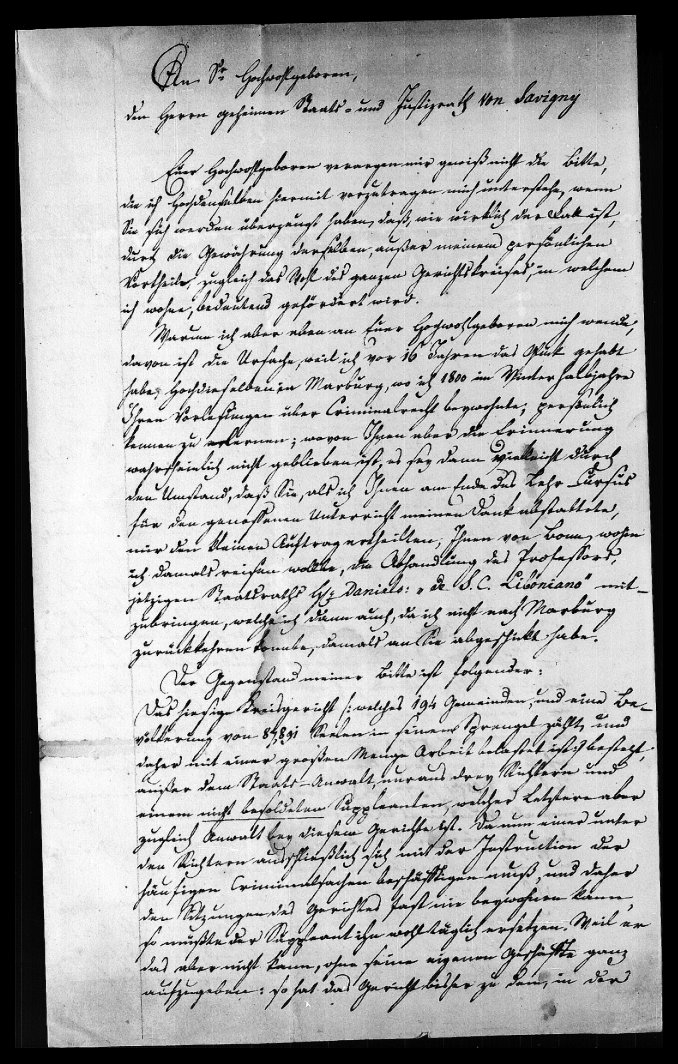 An Sr Hochwohlgeboren,
den Herrn geheimen Staats- und Justizrath von Savigny
Euer Hochwohlgeboren verargen mir gewiß nicht die Bitte,
die ich Hochdenselben hiermit vorzutragen mich unterstehe, wenn
Sie sich werden überzeugt haben, daß, wie wirklich der Fall ist,
durch die Gewährung derselben, außer meinem persönlichen
Vortheile, zugleich das Wohl des ganzen Gerichtskreises, in welchem
ich wohne, bedeutend gefördert wird.
Warum ich aber eben an Euer Hochwohlgeboren mich wende,
davon ist die Ursache, weil ich vor 16 Jahren das Glück gehabt
habe, Hochdieselben in Marburg, wo ich 1800 im Winterhalbjahre
Ihren Vorlesungen über Criminalrecht beywohnte, persönlich
kennen zu lernen; wovon Ihnen aber die Erinnerung
wahrscheinlich nicht geblieben ist, es sey dann vielleicht durch
den Umstand, daß Sie, als ich Ihnen am Ende des Lehr-Cursus
für den genossenen Unterricht meinen Dank abstattete,
mir den kleinen Auftrag ertheilten, Ihnen von Bonn, wohin
ich damals reisen wollte, die Abhandlung des Professors,
jetzigen Staatsraths Hr. Daniels: "de S. C. Liboniano" mit-
zubringen, welche ich dann auch, da ich nicht nach Marburg
zurückkehren konnte, damals an Sie abgeschickt habe.
Der Gegenstand meiner Bitte ist folgender:
Das hiesige Kreisgericht /: welches 194 Gemeinden, und eine Be-
völkerung von Seelen in seinem Sprengel zählt, und
daher mit einer großen Menge Arbeit belastet ist :/ besteht,
außer dem Staats-Anwalt, nur aus drey Richtern und
einem nicht besoldeten Suppleanten, welcher Letztere aber
zugleich Anwalt bey diesem Gerichte ist. Da nun einer unter
den Richtern ausschließlich sich mit der Instruction der
häufigen Criminalsachen beschäftigen muß, und daher
den Sitzungen des Gerichtes fast nie beywohnen kann,
so müßte der Suppleant ihn wohl täglich ersetzen. Weil er
das aber nicht kann, ohne seine eigenen Geschäfte ganz
aufzugeben: so hat das Gericht bisher zu dem, in der